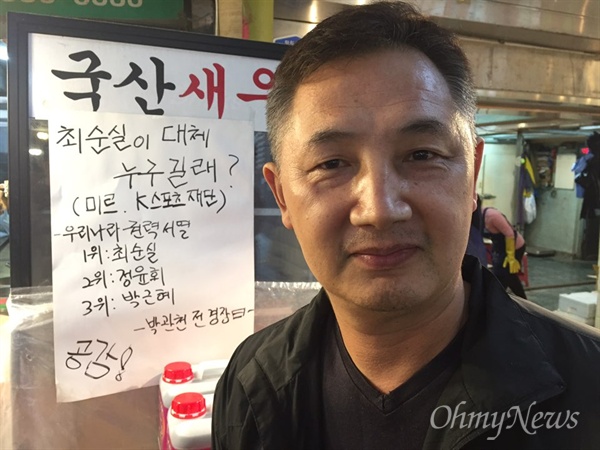 국산새우
최순실이 대체
누구길래?
(미르. K스포츠재단)
-우리나라 권력서열
1위: 최순실
2위: 정윤회
3위: 박근혜
-박관천 전 경정-
공감!
OhmyNews